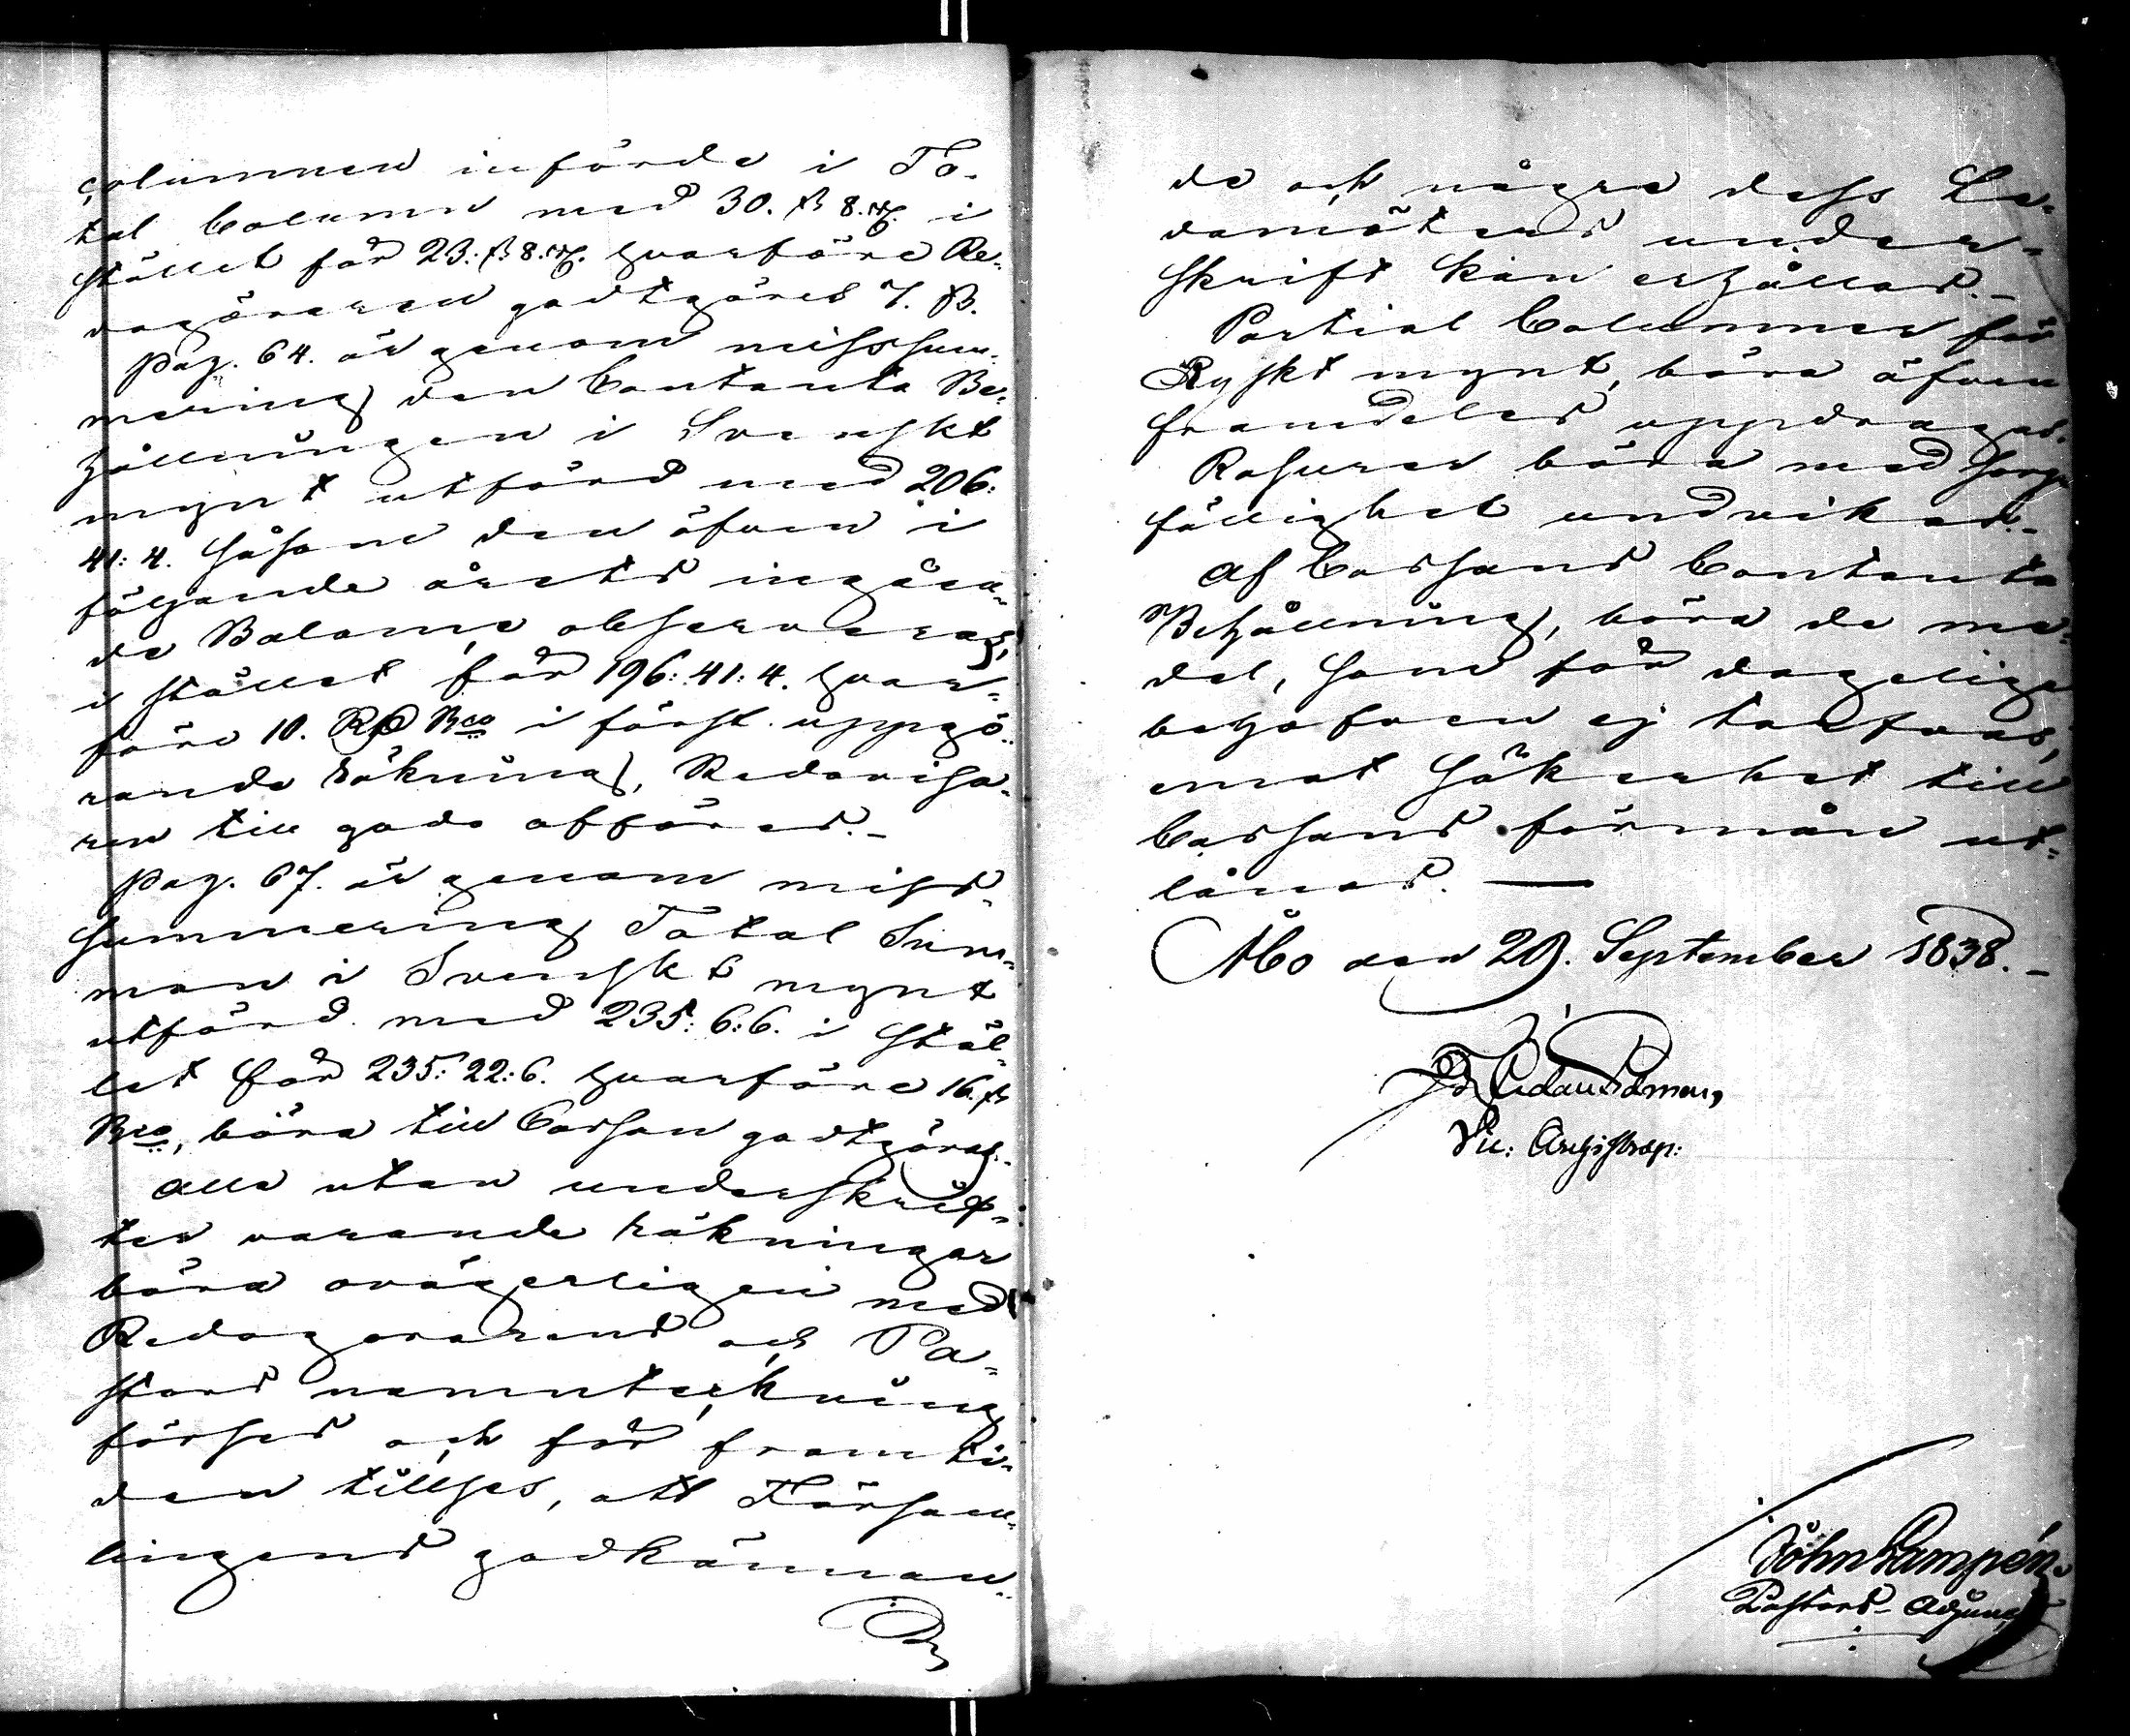 columnen införde i To-
tal Columnen med 30. ß 8. rst. i
stället för 23. ß 8. rst. hvarföre Re-
dogöraren godtgöres 7. ß.
Pag. 64. är genom misssum-
mering den Contanta Be-
hållningen i Svenskt
mynt utförd med 206:
41: 4. såsom den äfven i
följande årets ingåen-
de Balance observeras,
i stället för 196: 41: 4. hvar-
före 10. Rd Bco i först uppgö-
rande räkning, Redovisa-
ren till godo afföres.-
Pag. 67. är genom miss-
summering Total Sum-
man i Svenskt mynt
utförd med 235: 6: 6. i stäl-
let för 235: 22: 6. hvarföre 16. ß
Bco, böra till Cassan godtgöras.
Alla utan underskrif-
ter varande räkningar
böra ovägerligen med
Redogörarens och Pa-
stors namnteckning
förses och för framti-
den tillses, att Församl-
lingens godkännan-
de och några dess Le-
damöters under-
skrift kan erhållas.-
Partial Columner för
Ryskt mynt, böra äfven
framdeles uppdragas.
Rasurer böra med sorg-
fällighet undvikas.-
Af Cassans Contanta
Behållning, böra de me-
del, som för dagliga
behofven ej tarfvas,
emot säkerhet till
Cassans förmån ut-
lånas. —
Åbo den 29. September 1838.-
Vic:
John Lampén
Pastors-Adjunct